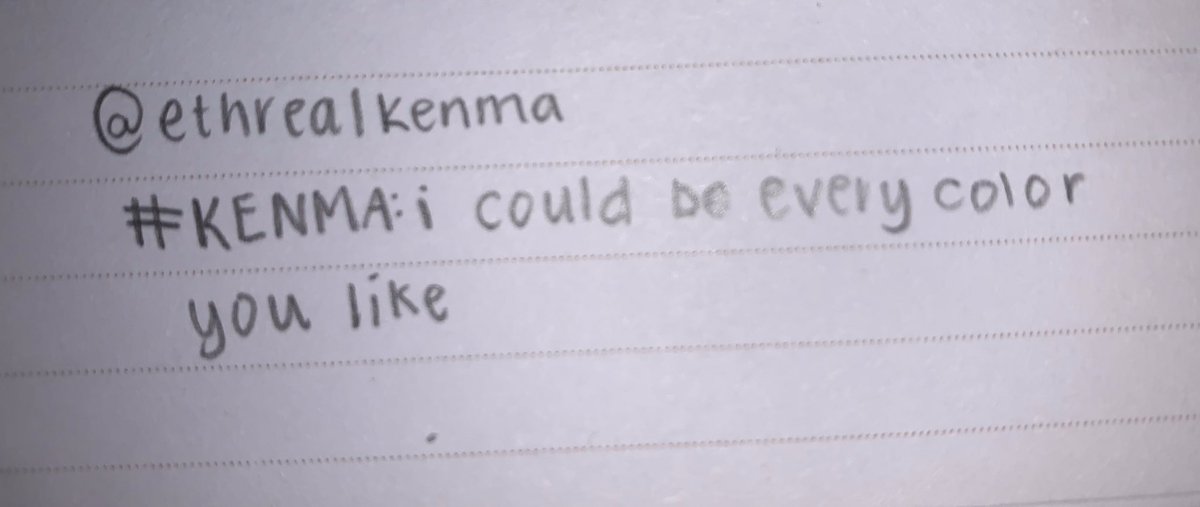 @ethrealkenma
#KENMA: i could be every color
you like